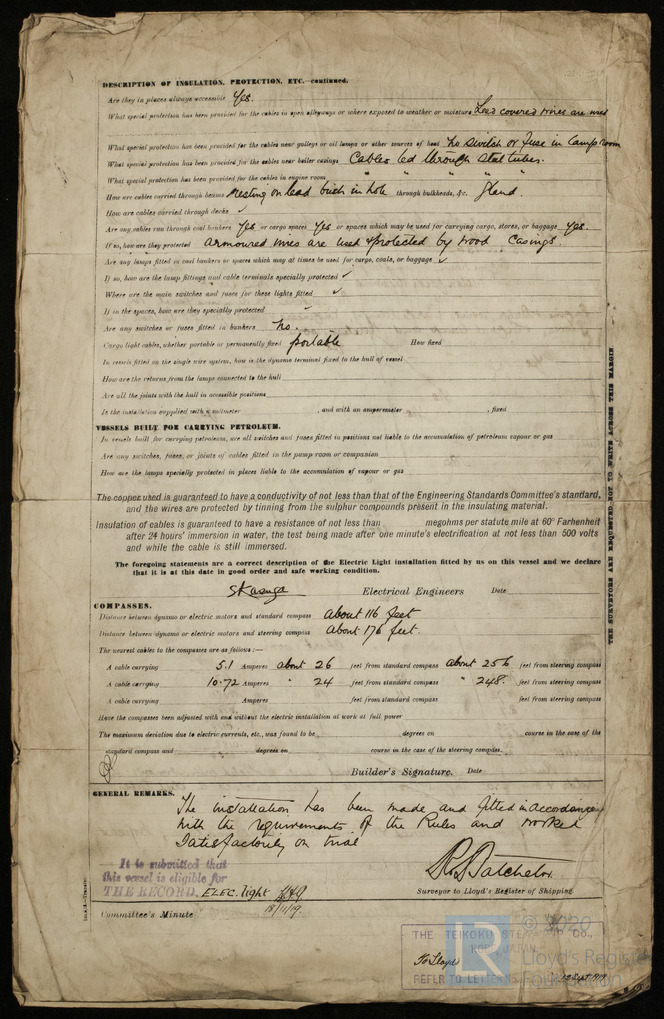 DESCRIPTION OF INSULATION, PROTECTION, ETC.—continued.
Are they in places always accessible Yes.
What special protection has been provided for the cables in open alleyways or where exposed to weather or moisture Lead covered wires are used
What special protection has been provided for the cables near galleys or oil lamps or other sources of heat No switch or fuse in lamp room
What special protection has been provided for the cables near boiler casings Cables led through steel tubes.
What special protection has been provided for the cables in engine room " " " " "
How are cables carried through beams resting on lead bush in hole through bulkheads, &c. Gland.
How are cables carried through decks ✓
Are any cables run through coal bunkers Yes or cargo spaces Yes or spaces which may be used for carrying cargo, stores, or baggage Yes.
If so, how are they protected Armoured wires are used & protected by wood casings.
Are any lamps fitted in coal bunkers or spaces which may at times be used for cargo, coals, or baggage ✓
If so, how are the lamp fittings and cable terminals specially protected ✓
Where are the main switches and fuses for these lights fitted ✓
If in the spaces, how are they specially protected ✓
Are any switches or fuses fitted in bunkers No.
Cargo light cables, whether portable or permanently fixed portable How fixed
In vessels fitted on the single wire system, how is the dynamo terminal fixed to the hull of vessel
How are the returns from the lamps connected to the hull
Are all the joints with the hull in accessible positions
Is the installation supplied with a voltmeter , and with an amperemeter , fixed
VESSELS BUILT FOR CARRYING PETROLEUM.
In vessels built for carrying petroleum, are all switches and fuses fitted in positions not liable to the accumulation of petroleum vapour or gas
Are any switches, fuses, or joints of cables fitted in the pump room or companion
How are the lamps specially protected in places liable to the accumulation of vapour or gas
The copper used is guaranteed to have a conductivity of not less than that of the Engineering Standards Committee's standard,
and the wires are protected by tinning from the sulphur compounds present in the insulating material.
Insulation of cables is guaranteed to have a resistance of not less than megohms per statute mile at 60° Farhenheit
after 24 hours' immersion in water, the test being made after one minute's electrification at not less than 500 volts
and while the cable is still immersed.
The foregoing statements are a correct description of the Electric Light installation fitted by us on this vessel and we declare
that it is at this date in good order and safe working condition.
S Kasuga Electrical Engineers Date
COMPASSES.
Distance between dynamo or electric motors and standard compass about 116 feet
Distance between dynamo or electric motors and steering compass about 176 feet.
The nearest cables to the compasses are as follows:—
A cable carrying 5.1 Amperes about 26 feet from standard compass about 256 feet from steering compass
A cable carrying 10.72 Amperes " 24 feet from standard compass " 248. feet from steering compass
A cable carrying Amperes feet from standard compass feet from steering compass
Have the compasses been adjusted with and without the electric installation at work at full power
The maximum deviation due to electric currents, etc., was found to be degrees on course in the case of the
standard compass and degrees on course in the case of the steering compass.
Builder's Signature. Date
GENERAL REMARKS.
The installation has been made and fitted in accordance
with the requirements of the Rules and worked
satisfactorily on trial
It is submitted that
this vessel is eligible for
THE RECORD. ELEC. light
18/11/19.
R.S. Batchelor
Surveyor to Lloyd's Register of Shipping
Committee's Minute
THE SURVEYORS ARE REQUESTED NOT TO WRITE ACROSS THIS MARGIN
THE TEIKOKU STEAMSHIP CO.,
KOBE, JAPAN.
To Lloyd
REFER TO LETTER No.
12 Sept 1919
© 2020
Lloyd's Register
Foundation
LR